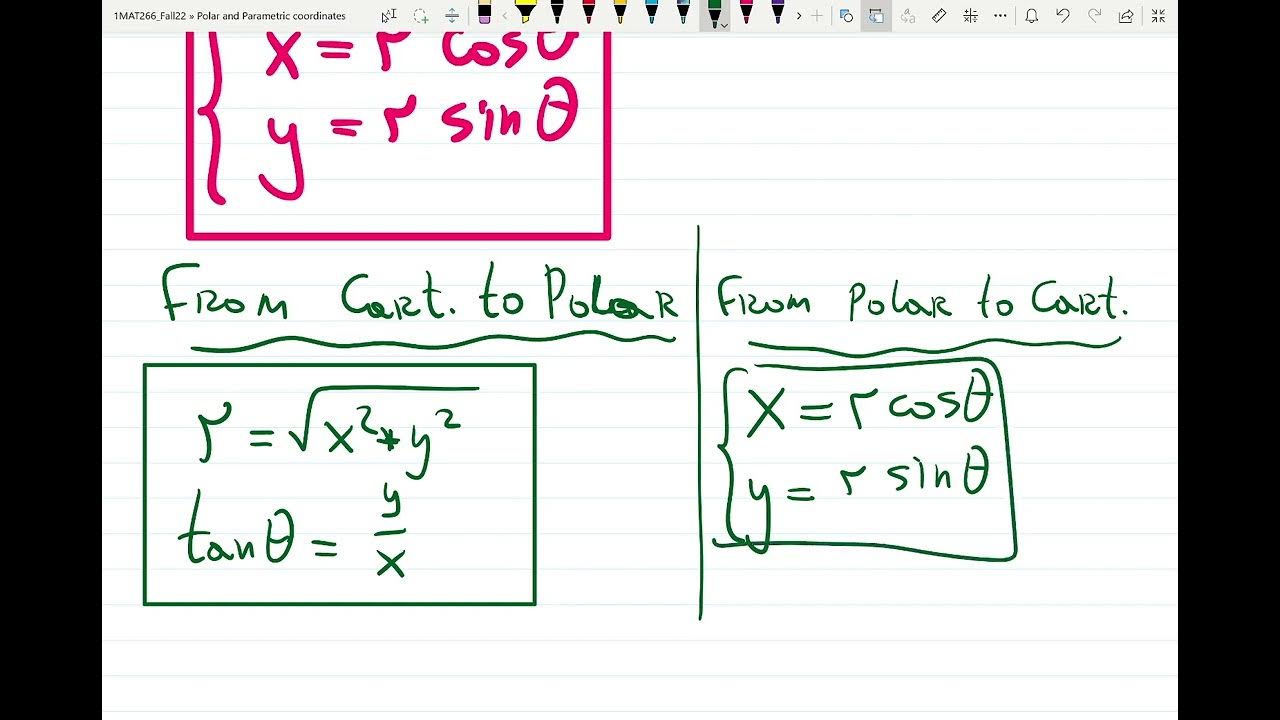 1MAT266_Fall22 » Polar and Parametric coordinates
x = r cosθ
y = r sinθ
From Cart. to Polar
r = √x²+y²
tanθ = y/x
From polar to Cart.
x = r cosθ
y = r sinθ